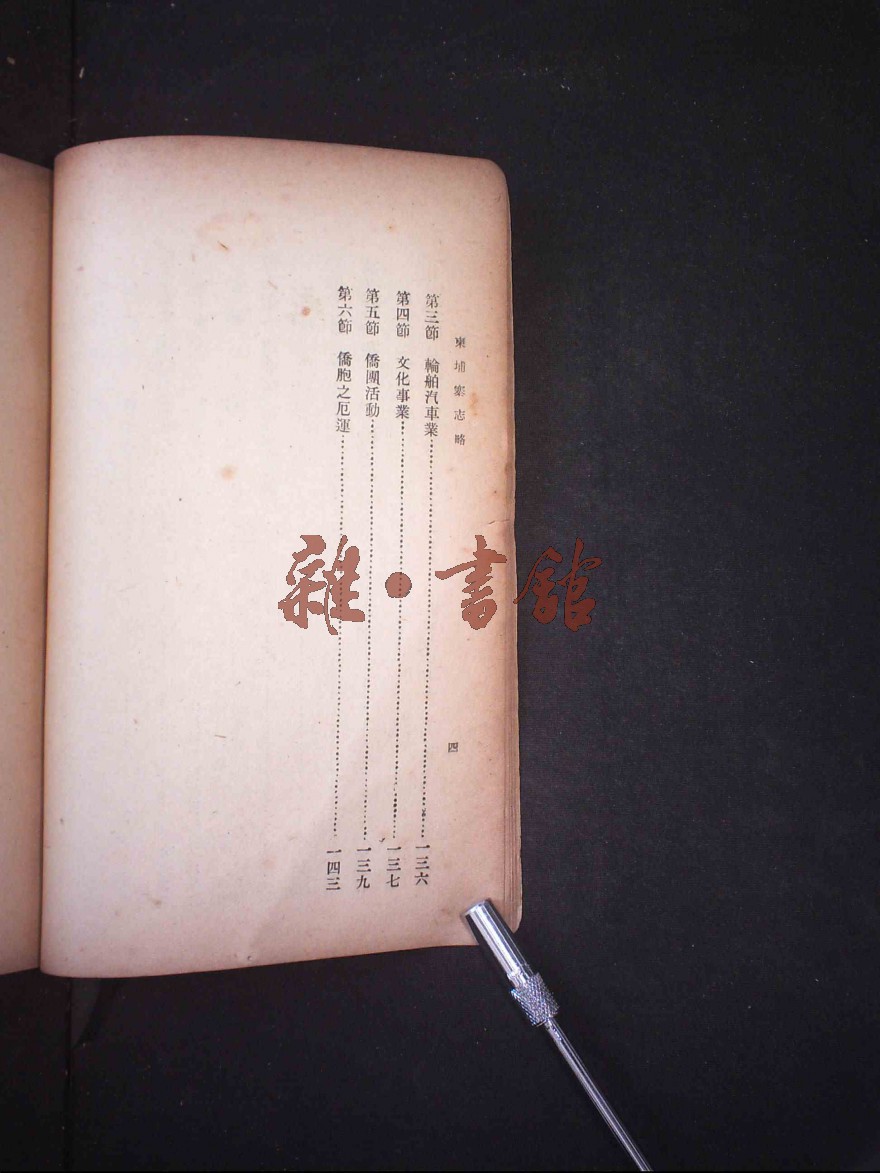 柬埔寨志略
四
第三節　輪舶汽車業……一三六
第四節　文化事業……一三七
第五節　僑團活動……一三九
第六節　僑胞之厄運……一四三
雜·書館